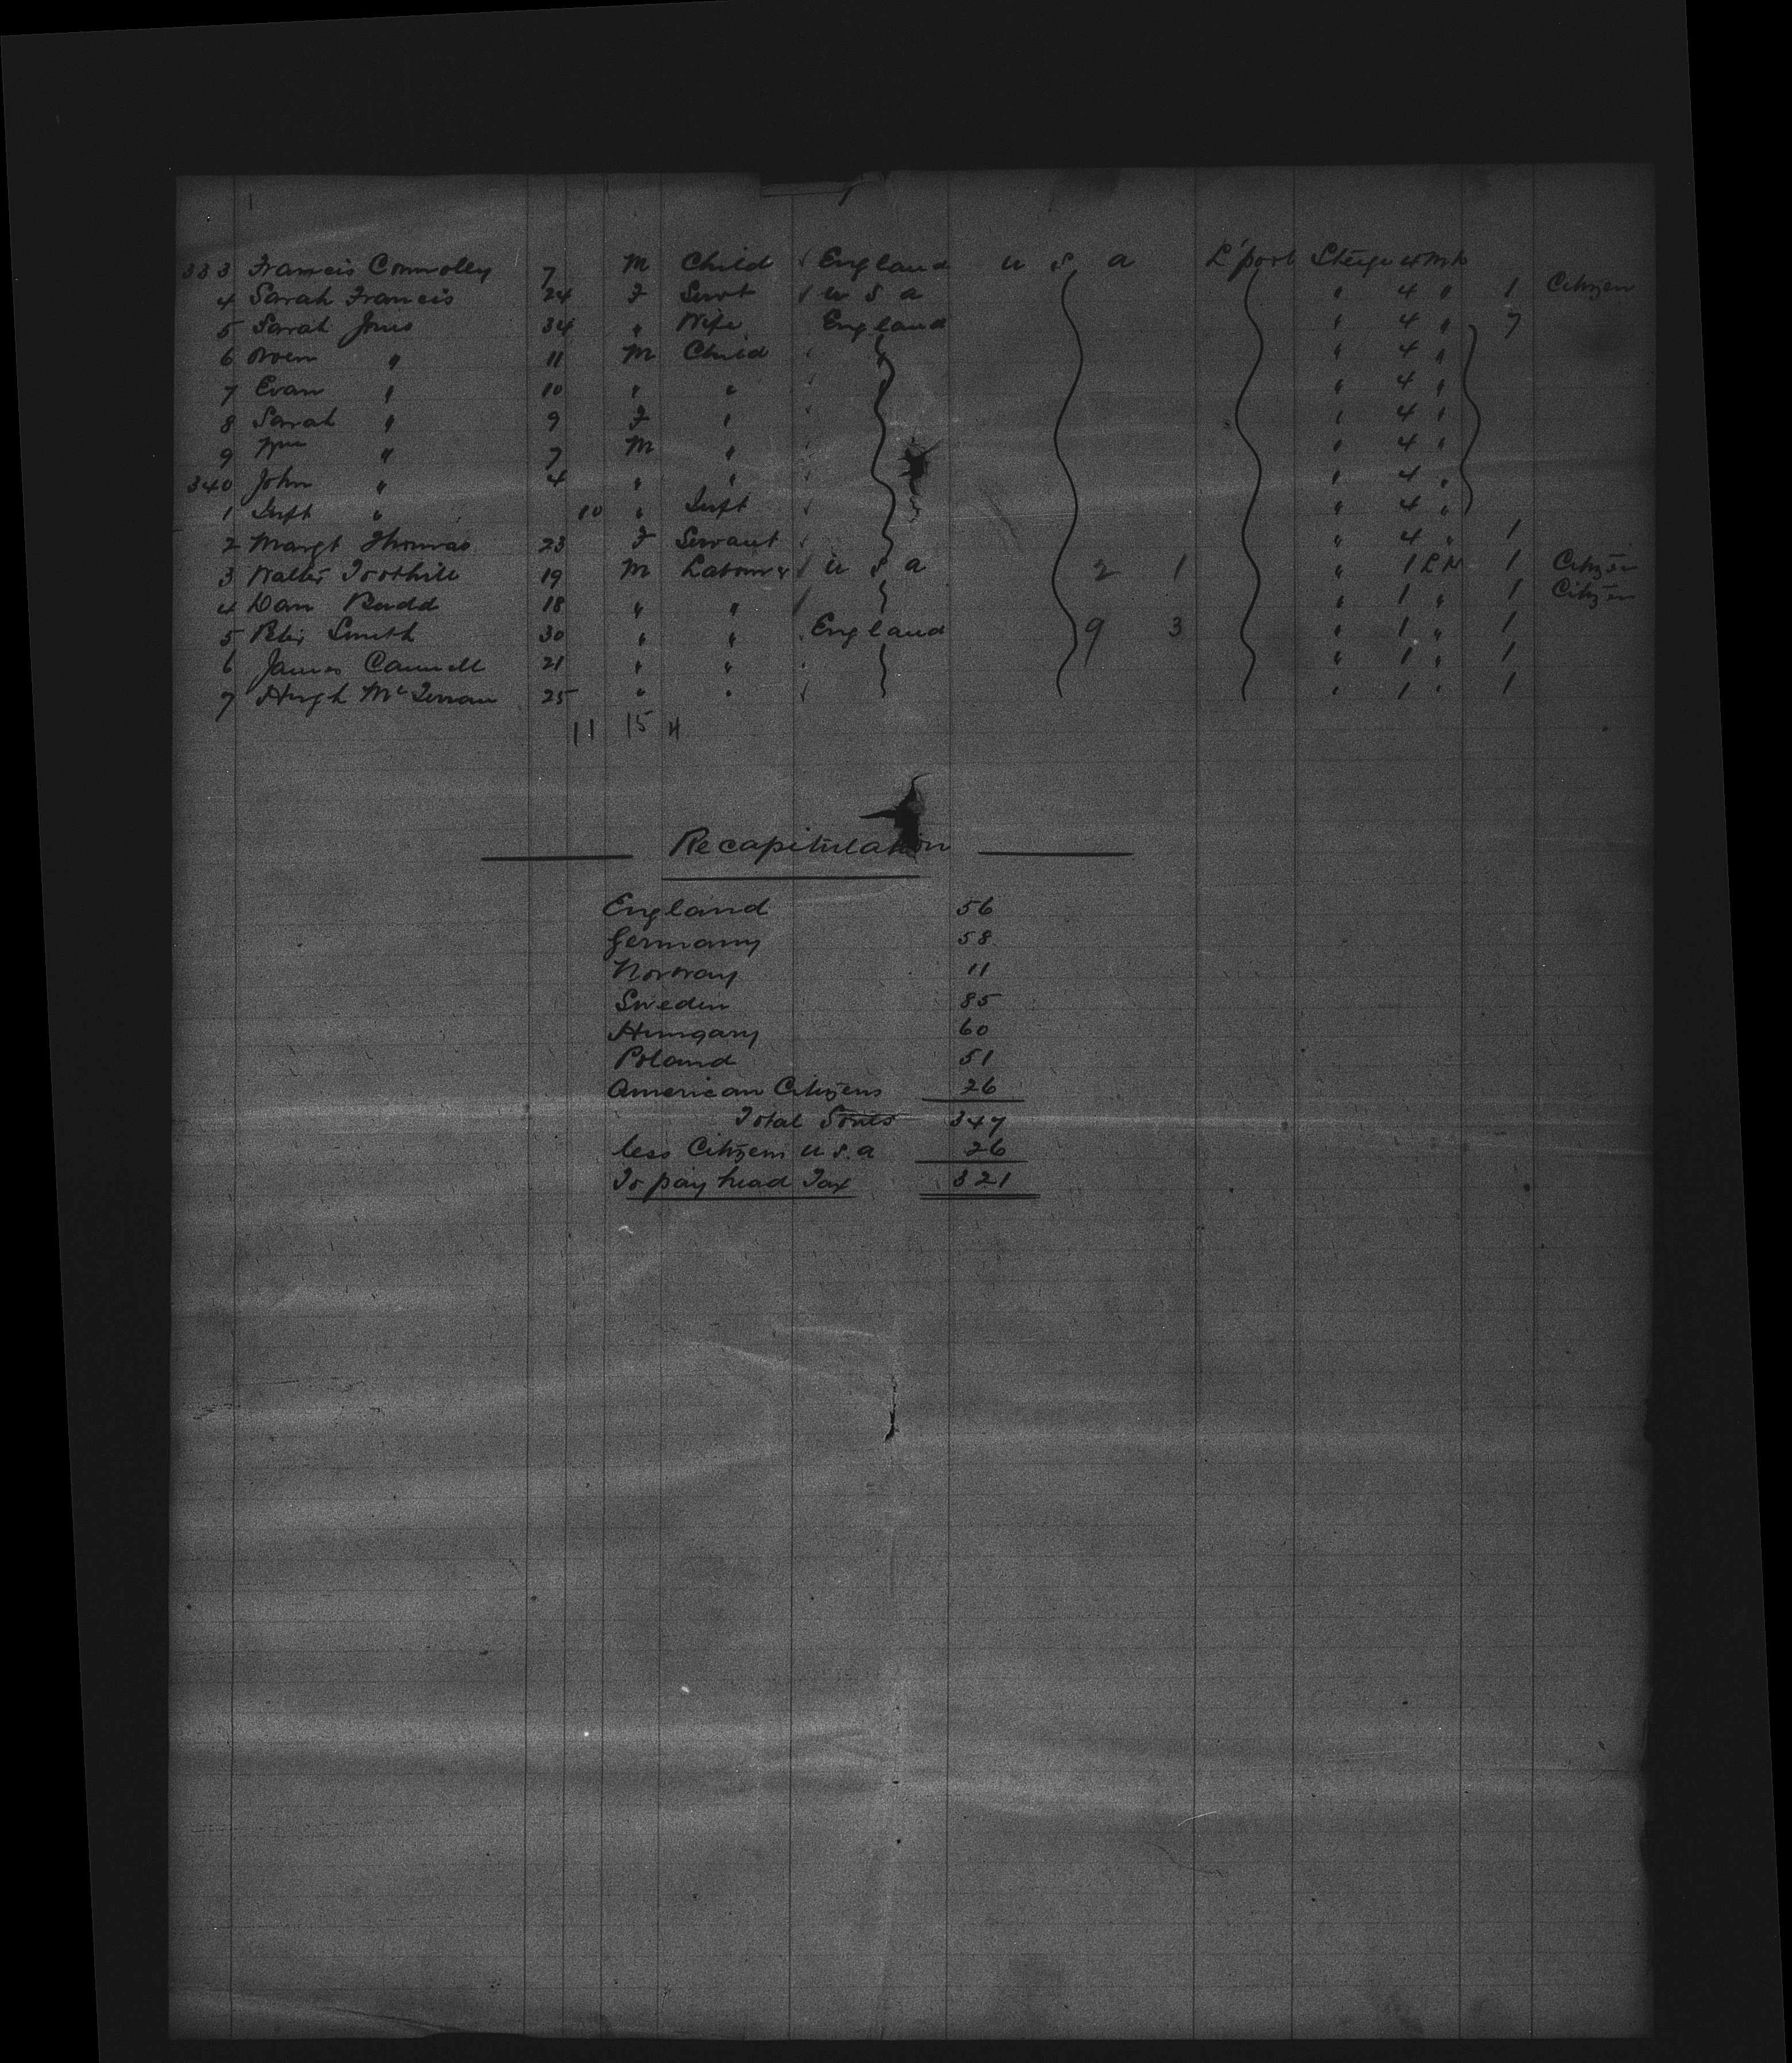 333 Francis Connolley 7 M Child England U S A L'pool Steige 4 Mh
4 Sarah Francis 24 F Servt U S A " 4 " 1 Citizen
5 Sarah Jones 34 " Wife England " 4 " 7
6 Owen " 11 M Child " " 4 "
7 Evan " 10 " " " 4 "
8 Sarah " 9 F " " 4 "
9 Wm " 7 M " " 4 "
340 John " 4 " " " 4 "
1 Inft " 10 " Inft " 4 "
2 Margt Thomas 23 F Servant " 4 " 1
3 Walter Toothill 19 M Labourer U S A 2 1 " 1 1 Citizen
4 Dan Budd 18 " " " 1 " 1 Citizen
5 Peter Smith 30 " " England 9 3 " 1 " 1
6 James Cannell 21 " " " 1 " 1
7 Hugh 25 " " " 1 " 1
11 15 4
Recapitulation
England 56
Germany 58
Norway 11
Sweden 85
Hungary 60
Poland 51
American Citizens 26
Total Souls 347
less Citizens U.S.A 26
To pay head Tax 321